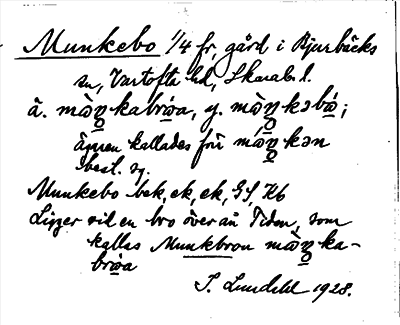 Munkebo 1/4 fr, gård i Bjurbäcks
sn, Vartofta hd, Skarab. l.
ä. mòŋkabrωa, y. mòŋkəbω;
ägaren kallades för móŋkən
best. sg.
Munkebo bek, ek, ek, GS, Hb
Ligger vid en bro över ån Tidan, som
kallas Munkbron mòŋka-
brωa
S. Lundahl 1928.